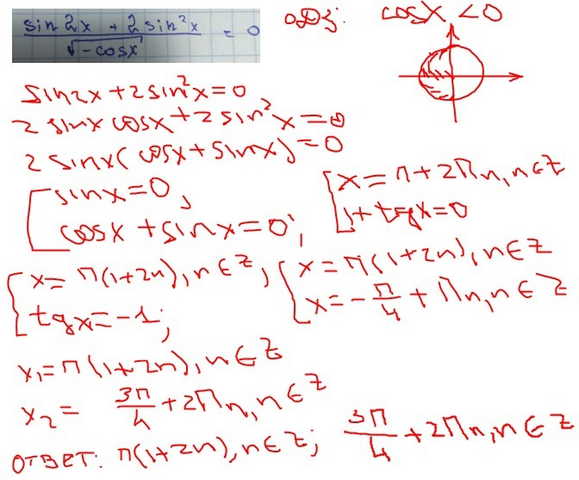 (sin 2x + 2 sin²x) / √(-cosx) = 0
ОДЗ: cosx < 0
sin2x + 2 sin²x = 0
2 sinx cosx + 2 sin²x = 0
2 sinx (cosx + sinx) = 0
[ sinx = 0,
cosx + sinx = 0;
[ x = π + 2πn, n ∈ Z
1 + tgx = 0
[ x = π(1+2n), n ∈ Z,
tgx = -1;
[ x = π(1+2n), n ∈ Z
x = -π/4 + πn, n ∈ Z
x₁ = π(1+2n), n ∈ Z
x₂ = 3π/4 + 2πn, n ∈ Z
ОТВЕТ: π(1+2n), n ∈ Z; 3π/4 + 2πn, n ∈ Z